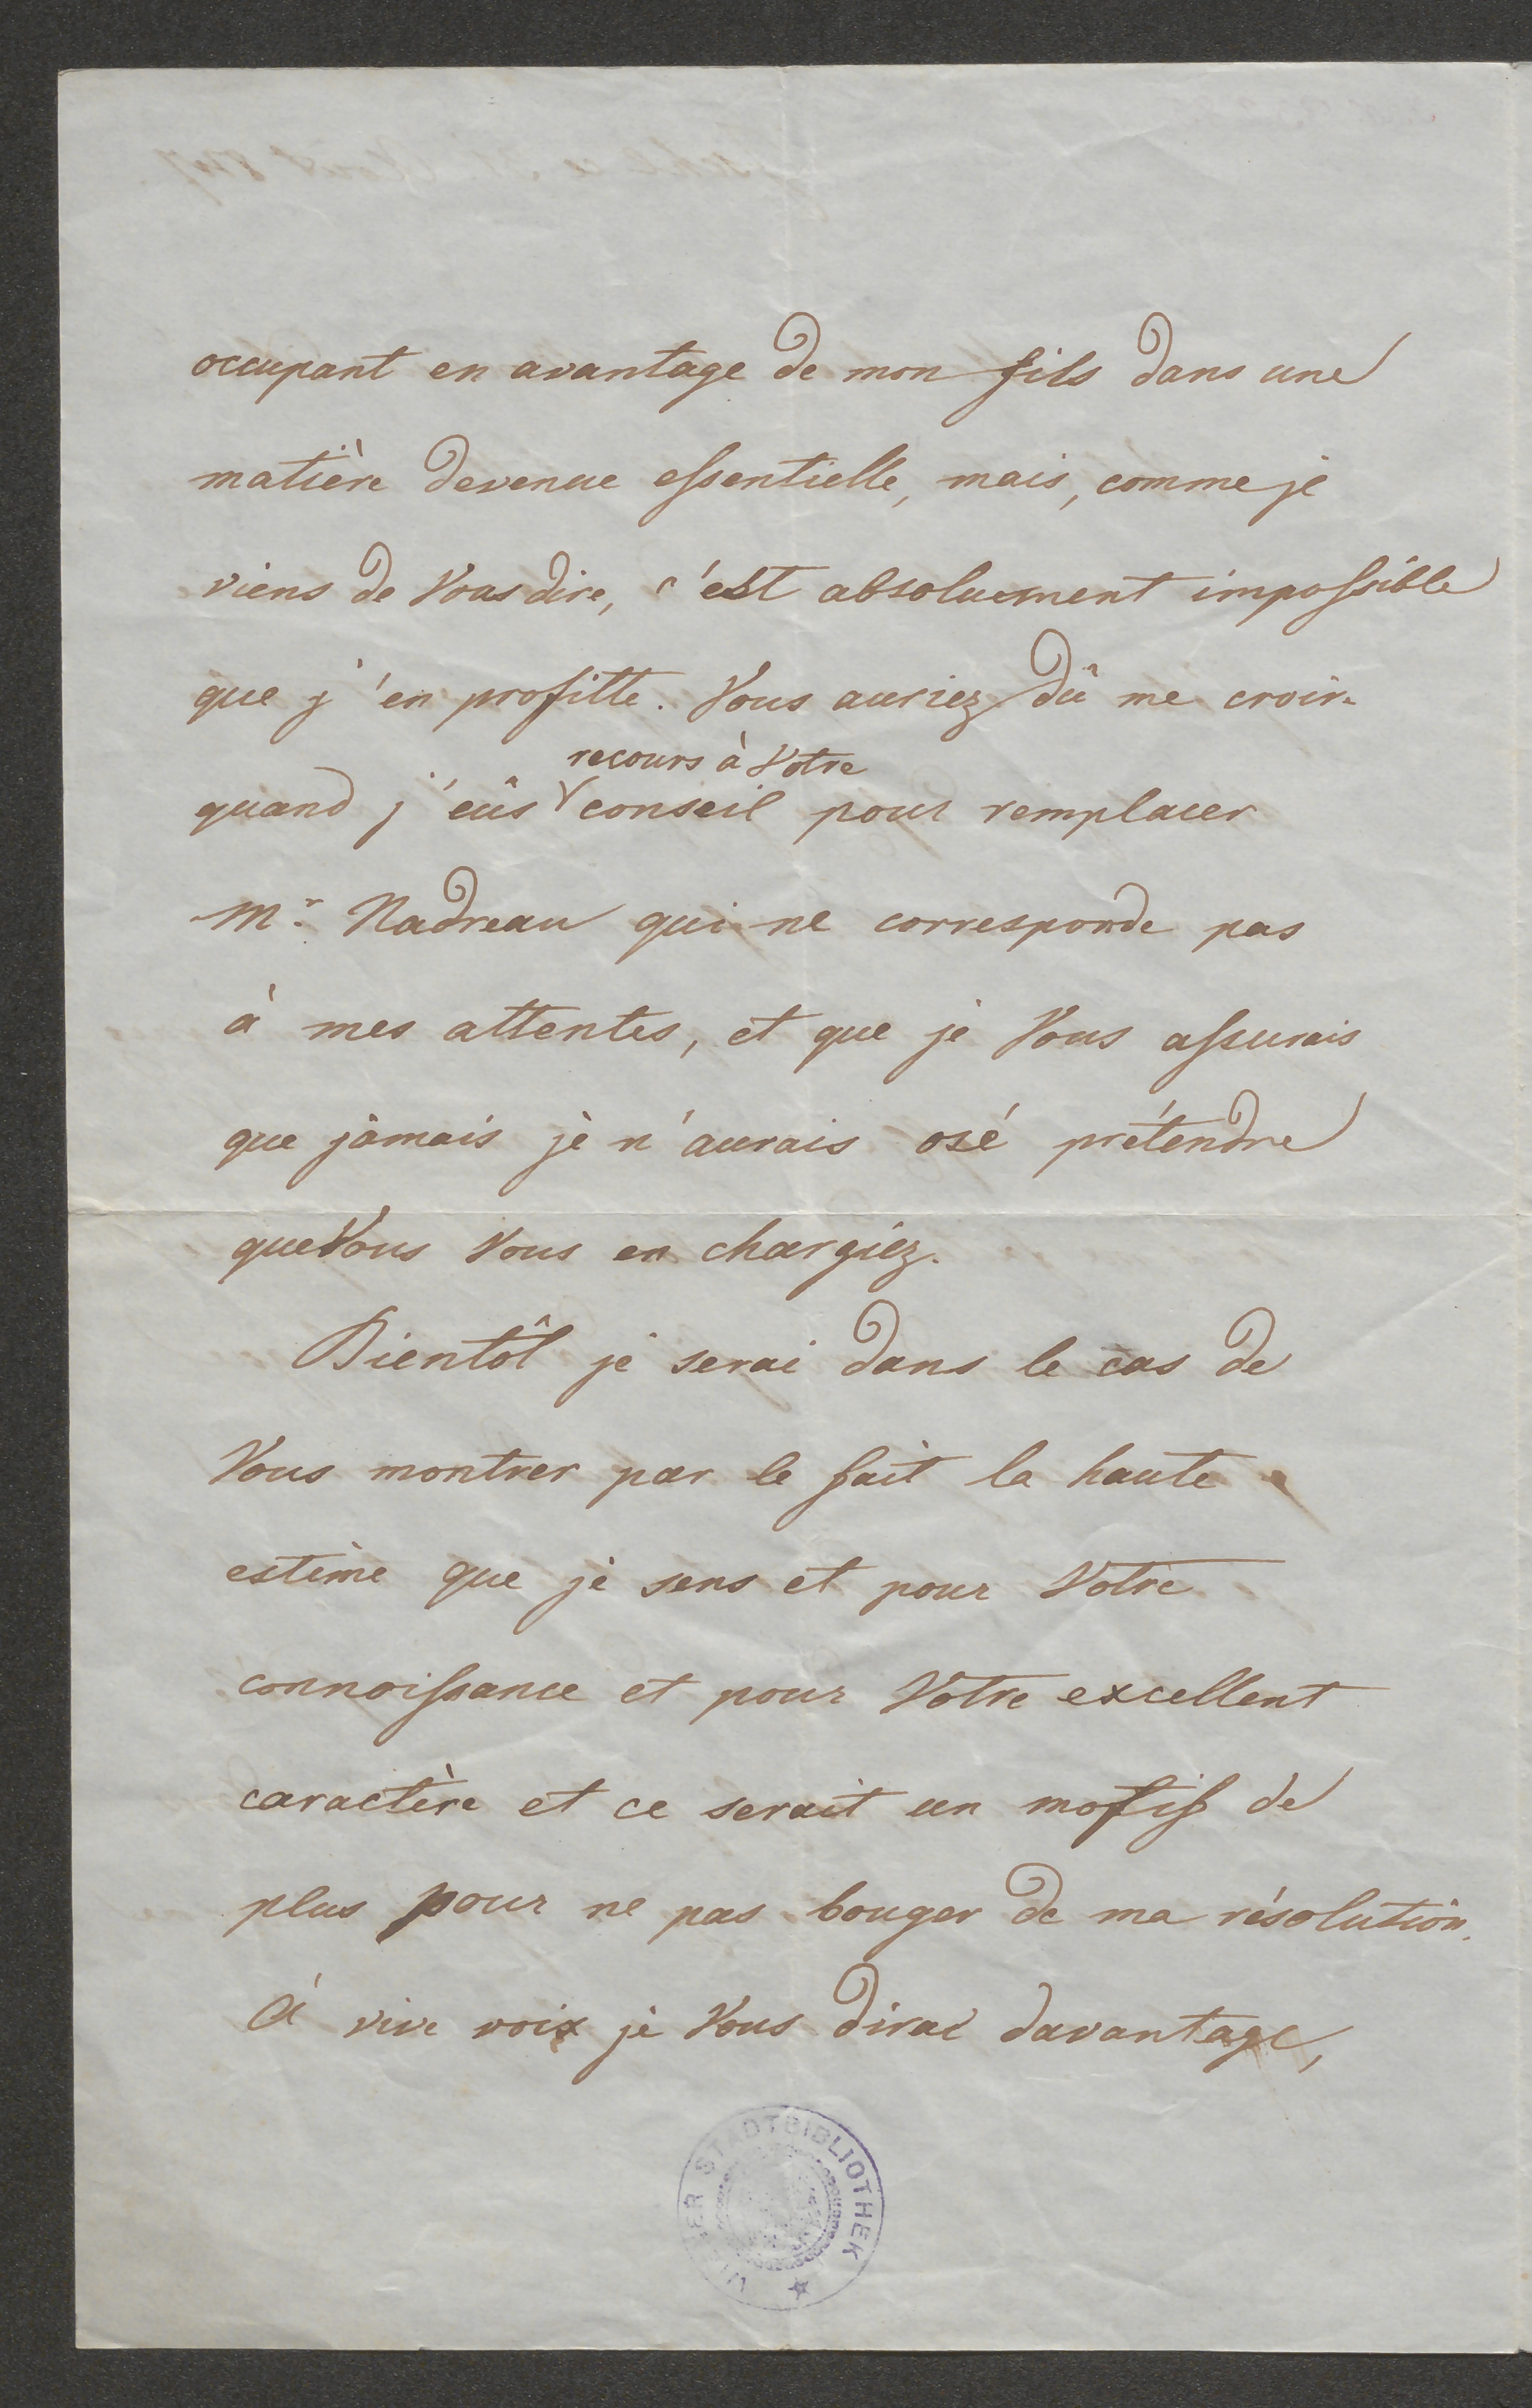 occupant en avantage de mon fils dans une
matière devenue essentielle, mais, comme je
viens de Vous dire, c'est absoluement impossible
que j'en profitte. Vous auriez dû me croire
recours à Votre
quand j'eûs conseil pour remplacer
Mr. Nadreau qui ne corresponde pas
à mes attentes, et que je Vous assurais
que jamais je n'aurais osé prétendre
que Vous Vous en chargiez.
Bientôt je serai dans le cas de
Vous montrer par le fait la haute
estime que je sens et pour Votre
connoissance et pour Votre excellent
caractère et ce serait un motif de
plus pour ne pas bouger de ma résolution.
A vive voix je Vous dirai davantage,
WIENER STADTBIBLIOTHEK